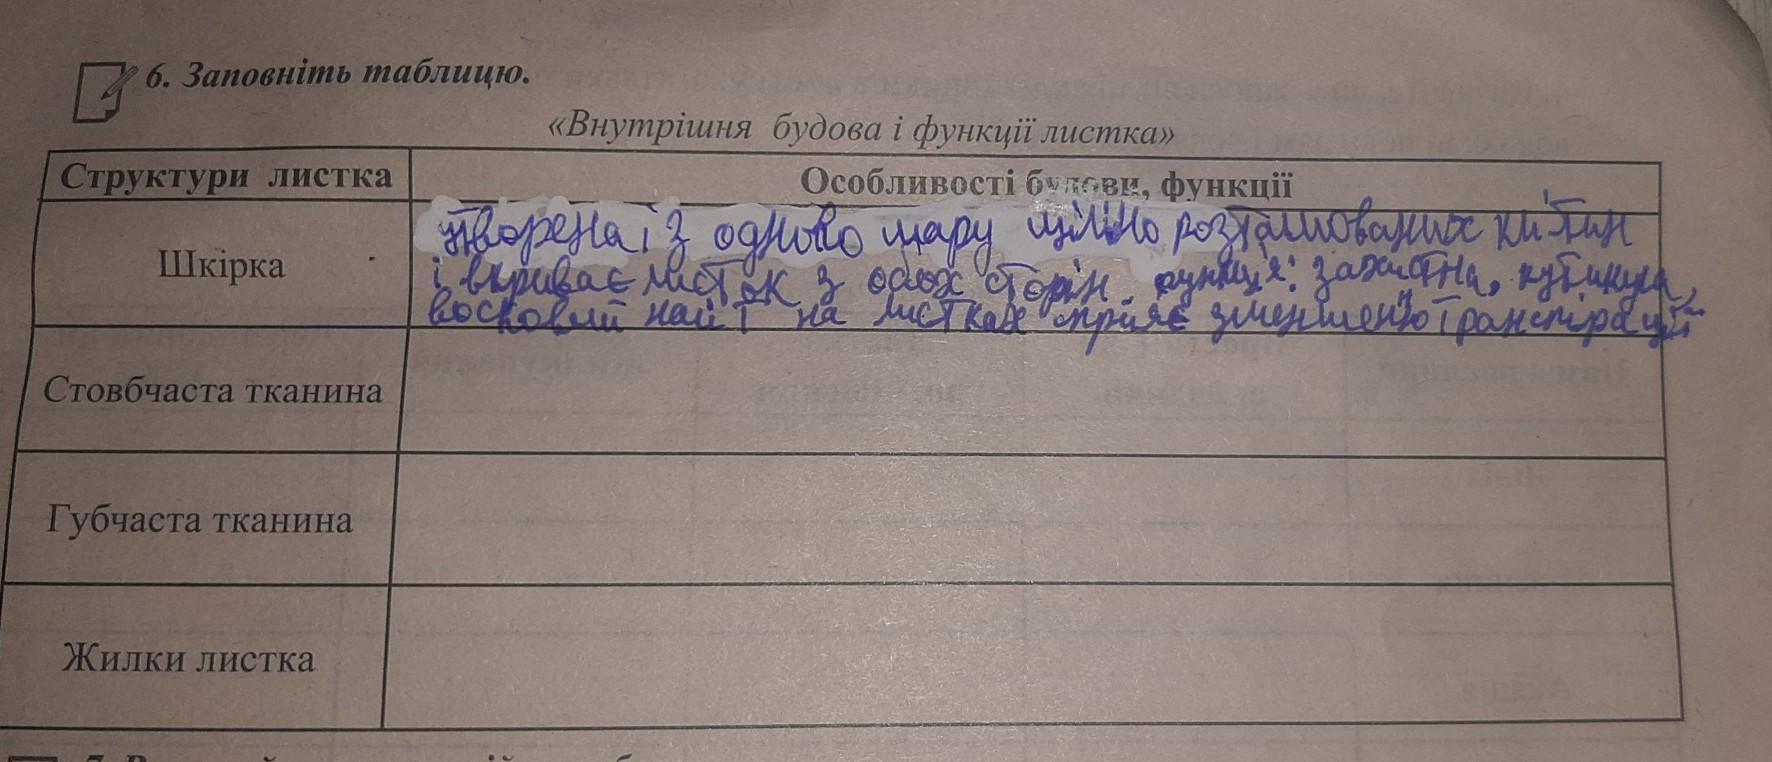 6. Заповніть таблицю.
«Внутрішня будова і функції листка»
Структури листка
Особливості будови, функції
Шкірка
утворена із одного шару щільно розташованих клітин
і вкриває листок з обох сторін. функція: захистна, кутикула,
восковий наліт на листках сприяє зменшенню транспірації
Стовбчаста тканина
Губчаста тканина
Жилки листка